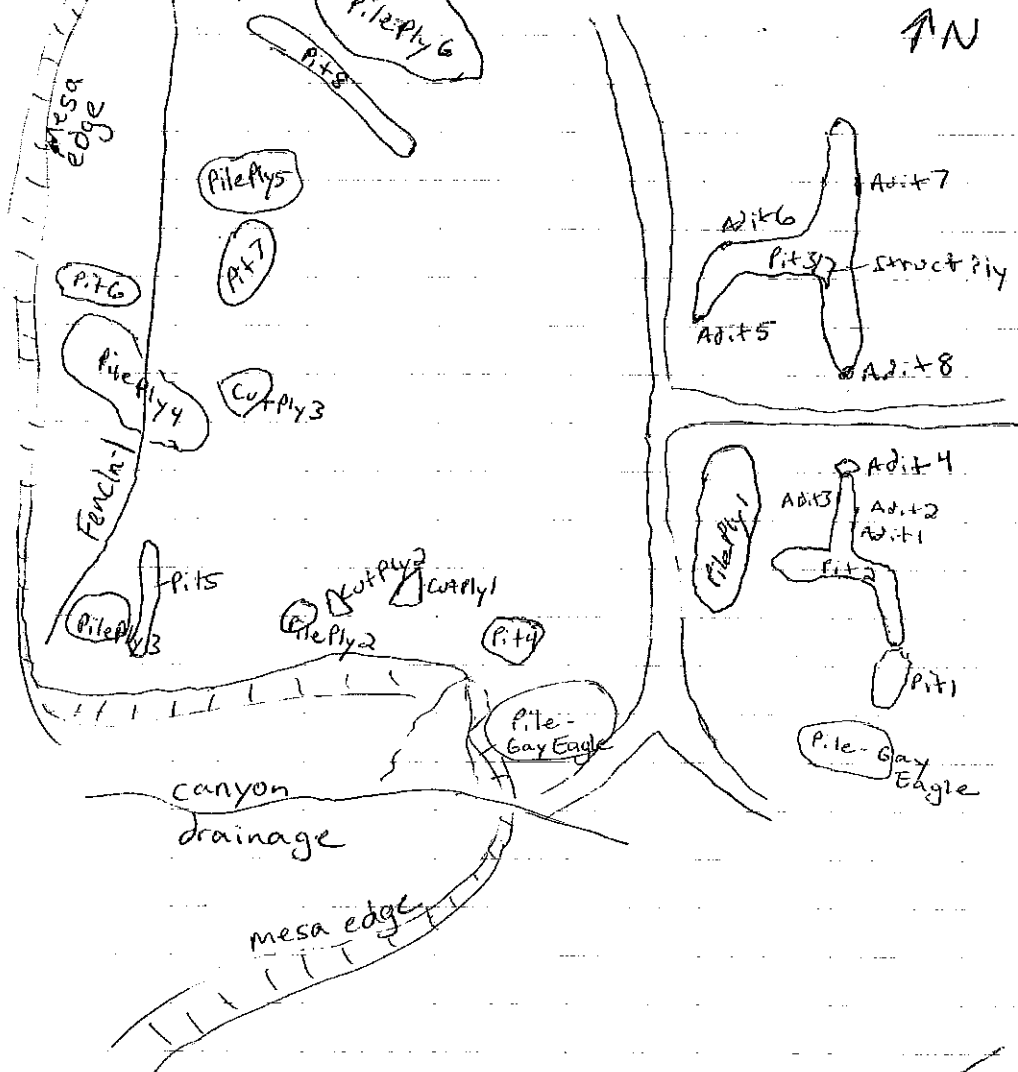 PilePly6
↑N
Pit8
Mesa
edge
PilePly5
Adit7
Adit6
Pit7
Pit3
StructPly
Pit6
Adit5
PilePly4
CutPly3
Adit8
Fencln-1
Adit4
Adit3
Adit2
Adit1
PilePly1
Pit2
Pit5
CutPly2
CutPly1
PilePly3
PilePly2
Pit4
Pit1
Pile-
Gay Eagle
Pile-Gay
Eagle
canyon
drainage
mesa edge